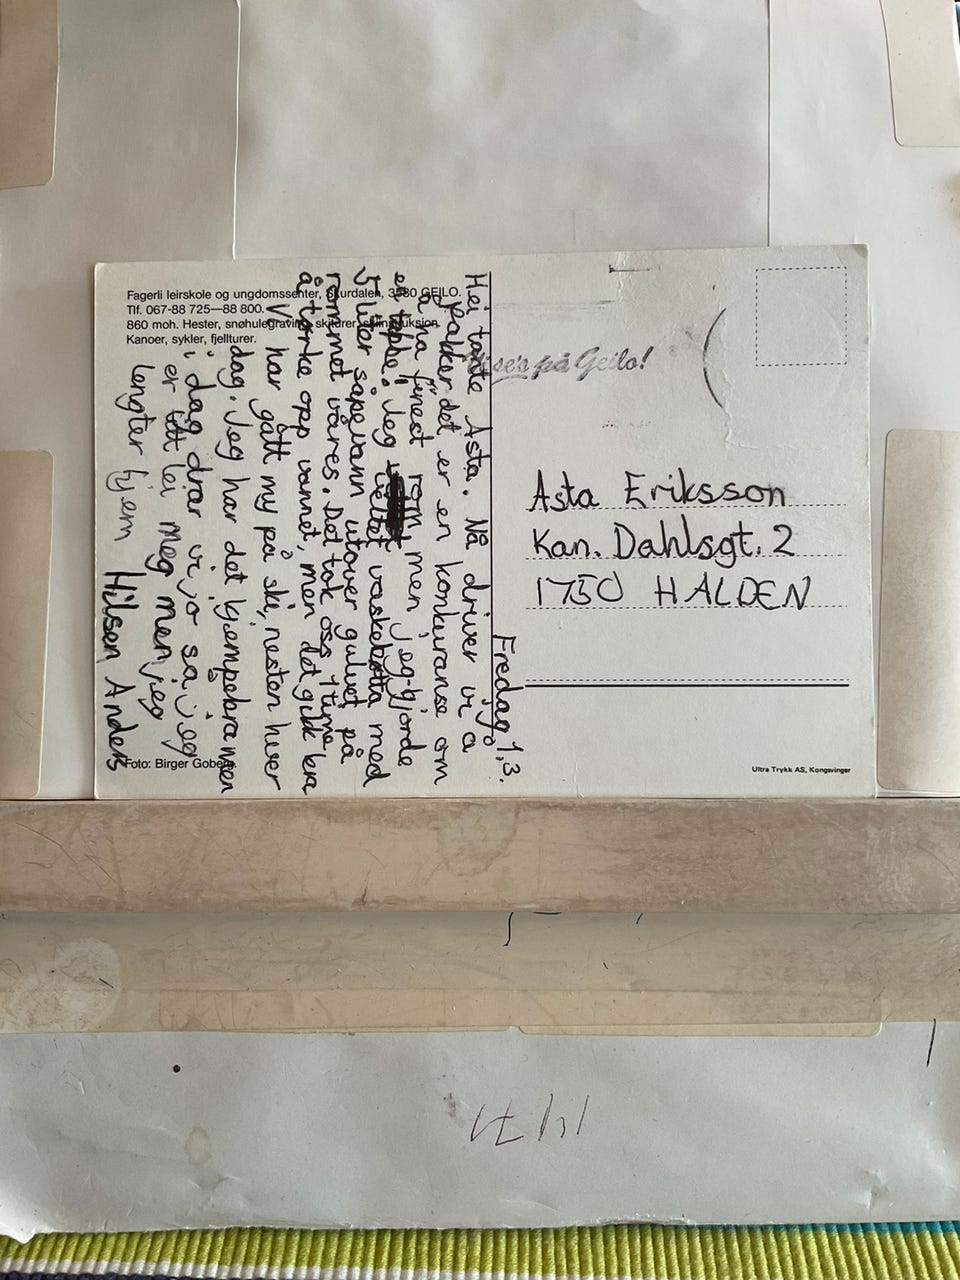 Fagerli leirskole og ungdomssenter, Skurdalen, 3580 GEILO.
Tlf. 067-88 725—88 800.
860 moh. Hester, snøhulegraving, skiturer, skiinstruksjon.
Kanoer, sykler, fjellturer.
Fredag 1,3.
Hei tante Asta. Nå driver vi å
jobber det er en konkuranse om
å ha finest rom, men jeg gjorde
en tabbe. Jeg veltet vaskebøtta med
5 liter såpevann utover gulvet på
rommet våres. Det tok oss 1 time
å tørke opp vannet, men det gikk bra
Vi har gått my på ski, nesten hver
dag. Jeg har det kjempebra men
i dag drar vi jo så jeg
er litt lei meg men jeg
lengter hjem Hilsen Anders
Foto: Birger Goberg.
på Geilo!
Asta Eriksson
Kan. Dahlsgt. 2
1750 HALDEN
Ultra Trykk AS, Kongsvinger